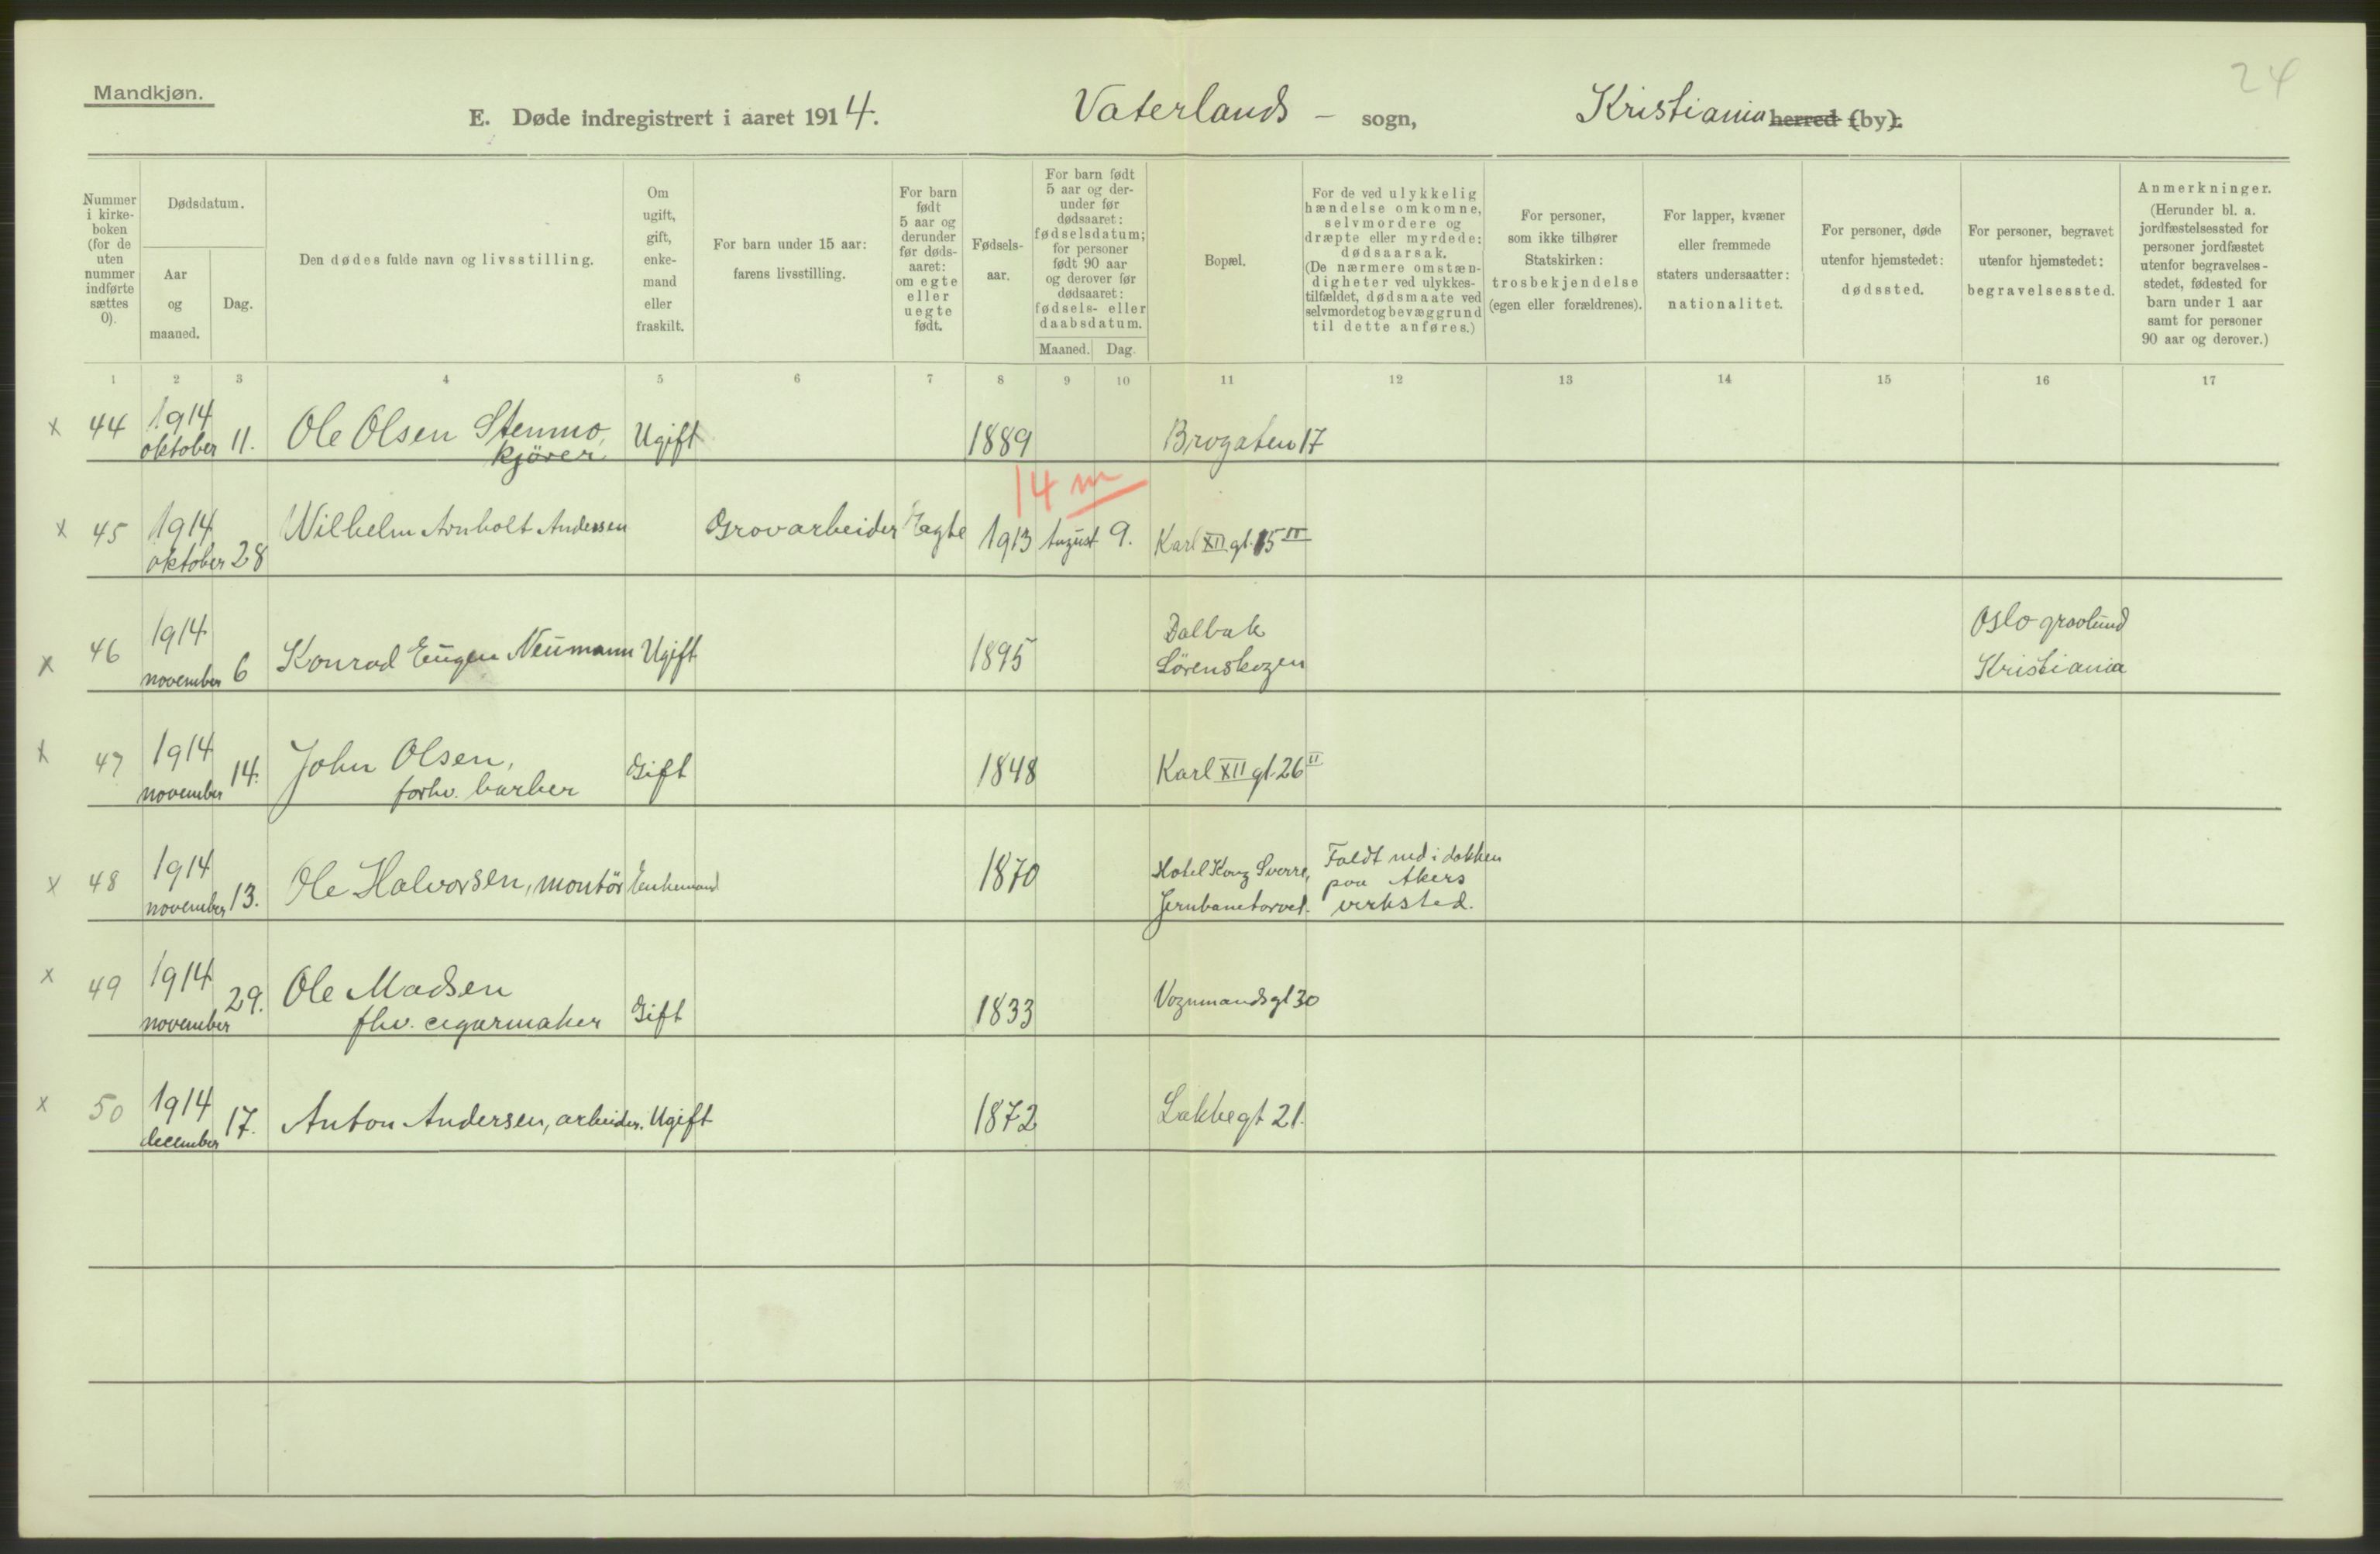 24
Mandkjøn.
E. Døde indregistrert i aaret 1914. Vaterlands – sogn, Kristiania herred (by).
Nummer i kirkeboken (for de uten nummer indførte sættes 0).
Dødsdatum.
Aar og maaned.
Dag.
Den dødes fulde navn og livsstilling.
Om ugift, gift, enkemand eller fraskilt.
For barn under 15 aar: farens livsstilling.
For barn født 5 aar og derunder før dødsaaret: om egte eller uegte født.
Fødselsaar.
For barn født 5 aar og derunder før dødsaaret: fødselsdatum; for personer født 90 aar og derover før dødsaaret: fødsels- eller daabsdatum.
Maaned. Dag.
Bopæl.
For de ved ulykkelig hændelse omkomne, selvmordere og dræpte eller myrdede: dødsaarsak. (De nærmere omstændigheter ved ulykkestilfældet, dødsmaate ved selvmordet og bevæggrund til dette anføres.)
For personer, som ikke tilhører Statskirken: trosbekjendelse (egen eller forældrenes).
For lapper, kvæner eller fremmede staters undersaatter: nationalitet.
For personer, døde utenfor hjemstedet: dødssted.
For personer, begravet utenfor hjemstedet: begravelsessted.
Anmerkninger. (Herunder bl. a. jordfæstelsessted for personer jordfæstet utenfor begravelsesstedet, fødested for barn under 1 aar samt for personer 90 aar og derover.)
1 2 3 4 5 6 7 8 9 10 11 12 13 14 15 16 17
x 44 1914 oktober 11. Ole Olsen Stenmo, kjörer. Ugift 1889 Brogaten 17
14 m
x 45 1914 oktober 28 Wilhelm Arnholt Andersen Grovarbeider Ægte 1913 August 9. Karl XII gt. 15 II
x 46 1914 november 6 Konrad Eugen Neumann Ugift 1895 Dalbak Lörenskogen Oslo gravlund Kristiania
x 47 1914 november 14. John Olsen, forhv. barber Gift 1848 Karl XII gt. 26 II
x 48 1914 november 13. Ole Halvorsen, montör Enkemand 1870 Hotel Kong Sverre, Jernbanetorvet. Faldt ned i dokken paa Akers verksted.
x 49 1914 november 29. Ole Madsen fhv. cigarmaker Gift 1833 Vognmandsgt 30
x 50 1914 december 17. Anton Andersen, arbeider. Ugift 1872 Lakkegt 21.